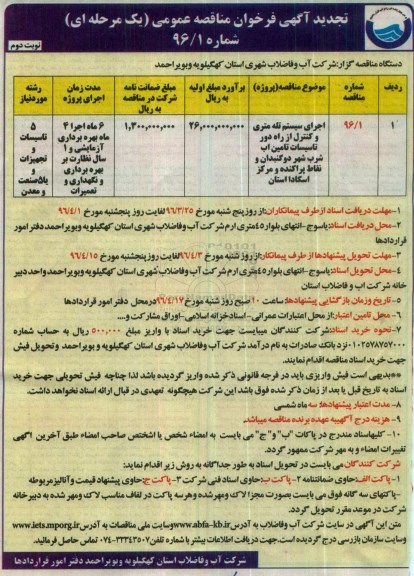 تجدید آگهی فرخوان مناقصه عمومی (یک مرحله ای)
شماره ۹۶/۱
نوبت دوم
دستگاه مناقصه گزار: شرکت آب و فاضلاب شهری استان کهگیلویه وبویراحمد
ردیف
شماره مناقصه
موضوع مناقصه(پروژه)
برآورد مبلغ اولیه به ریال
مبلغ ضمانت نامه شرکت در مناقصه به ریال
مدت زمان اجرای پروژه
رشته موردنیاز
۱
۹۶/۱
اجرای سیستم تله متری
و کنترل از راه دور
تاسیسات تامین اب
شرب شهر دوگنبدان و
نقاط پراکنده و مرکز
اسکادا استان
۲۶,۰۰۰,۰۰۰,۰۰۰
۱,۳۰۰,۰۰۰,۰۰۰
۶ ماه اجرا ۴
ماه بهره برداری
آزمایشی و ۱
سال نظارت بر
بهره برداری
و نگهداری و
تعمیرات
۵
تاسیسات
و
تجهیزات
و
یا۵صنعت
و معدن
۱-مهلت دریافت اسناد ازطرف پیمانکاران:از روز پنج شنبه مورخ ۹۶/۳/۲۵ لغایت روز پنجشنبه مورخ ۹۶/۴/۱
۲-محل دریافت اسناد:یاسوج-انتهای بلوار۴۵متری ارم شرکت آب و فاضلاب شهری استان کهگیلویه وبویراحمد دفتر امور
قراردادها
۳-مهلت تحویل پیشنهادها از طرف پیمانکاران:از روز شنبه مورخ ۹۶/۴/۳ لغایت روزپنجشنبه مورخ ۹۶/۴/۱۵
۴-محل تحویل اسناد:یاسوج-انتهای بلوار۴۵متری ارم شرکت آب و فاضلاب شهری استان کهگیلویه وبویراحمد واحد دبیر
خانه شرکت اب و فاضلاب استان
۵- تاریخ وزمان بازگشایی پیشنهادها:ساعت ۱۰ صبح روز شنبه مورخ ۹۶/۴/۱۷ درمحل دفتر امور قراردادها
۶-محل تامین اعتبار:از محل اعتبارات عمرانی-اسنادخزانه اسلامی-اوراق مشارکت و....
۷-نحوه خرید اسناد:شرکت کنندگان میبایست جهت خرید اسناد با واریز مبلغ ۵۰۰,۰۰۰ ریال به حساب شماره
۰۱۰۲۵۷۸۷۵۷۰۰۰ نزد بانک صادرات به نام درآمد شرکت آب و فاضلاب شهری استان کهگیلویه و بویر احمد وتحویل فیش
جهت خرید اسناد مناقصه اقدام نمایند.
**بدیهی است فیش واریزی باید در فرجه قانونی ذکر شده واریز گردیده باشد لذا چناچه فیش تحویلی جهت خرید
اسناد به تاریخ قبل یا بعد از زمان ذکر شده فوق باشد این شرکت هیچگونه تعهدی در قبال ارائه اسناد نخواهد داشت.
۸- مدت اعتبار پیشنهادها: سه ماه شمسی
۹- هزینه درج آگهیبه عهده برنده مناقصه میباشد.
۱۰-کلیهاسناد مندرج در پاکات "ب" و"ج" می بایست به امضاء شخص یا اشخص صاحب امضاء طبق آخرین آگهی
تغییرات امضاء و به مهر شرکت ممهور گردد.
شرکت کنندگان می بایست در تحویل اسناد به طور جداگانه به روش زیر اقدام نماید:
۱-پاکت الف:حاوی ضمانتنامه ۲-پاکت ب:حاوی اسناد فنی شرکت ۳-پاکت ج:حاوی پیشنهاد قیمت و آنالیزمربوطه
-پاکتهای سه گانه فوق می بایست بصورت مجزا لاک ومهرشده وهرسه پاکت در لفاف مناسب لاک ومهرشده به دبیر خانه
شرکت در موعد مقرر تحویل گردد.
متن این آگهی در سایت شرکت آب وفاضلاب به آدرس www.abfa-kb.ir وسایت ملی مناقصات به آدرس www.iets.mporg.ir
وسایت سازمان بازرسی درج گردیده است.جهت دریافت اطلاعات بیشتر با شماره تلفن ۰۷۴-۳۳۳۴۳۵۰۷ تماس حاصل فرمائید.
شرکت آب وفاضلاب استان کهگیلویه وبویراحمد دفتر امور قراردادها